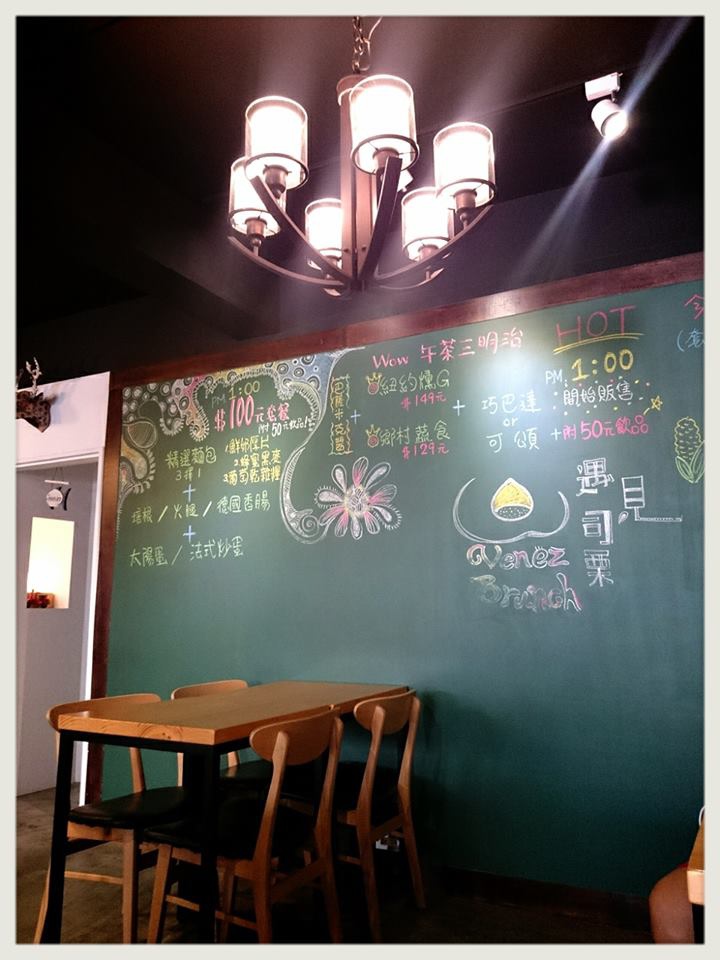 PM 1:00
$100元套餐
附50元飲品!
精選麵包
3擇1
1.鮮奶厚片
2.蜂蜜黑麥
3.葡萄乾雜糧
+
培根 / 火腿 / 德國香腸
+
太陽蛋 / 法式炒蛋
Wow 午茶三明治
巴薩米克醬
+
紐約燻G
$149元
鄉村蔬食
$129元
+
巧巴達
or
可頌
HOT
PM 1:00
開始販售
+附50元飲品
遇見
司栗
Venez
Brunch